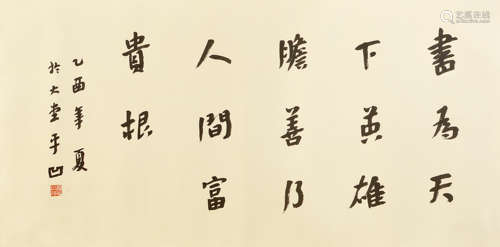 書為天
下英雄
膽善乃
人間富
貴根
乙酉年夏
於大堂平凹
艺典中国